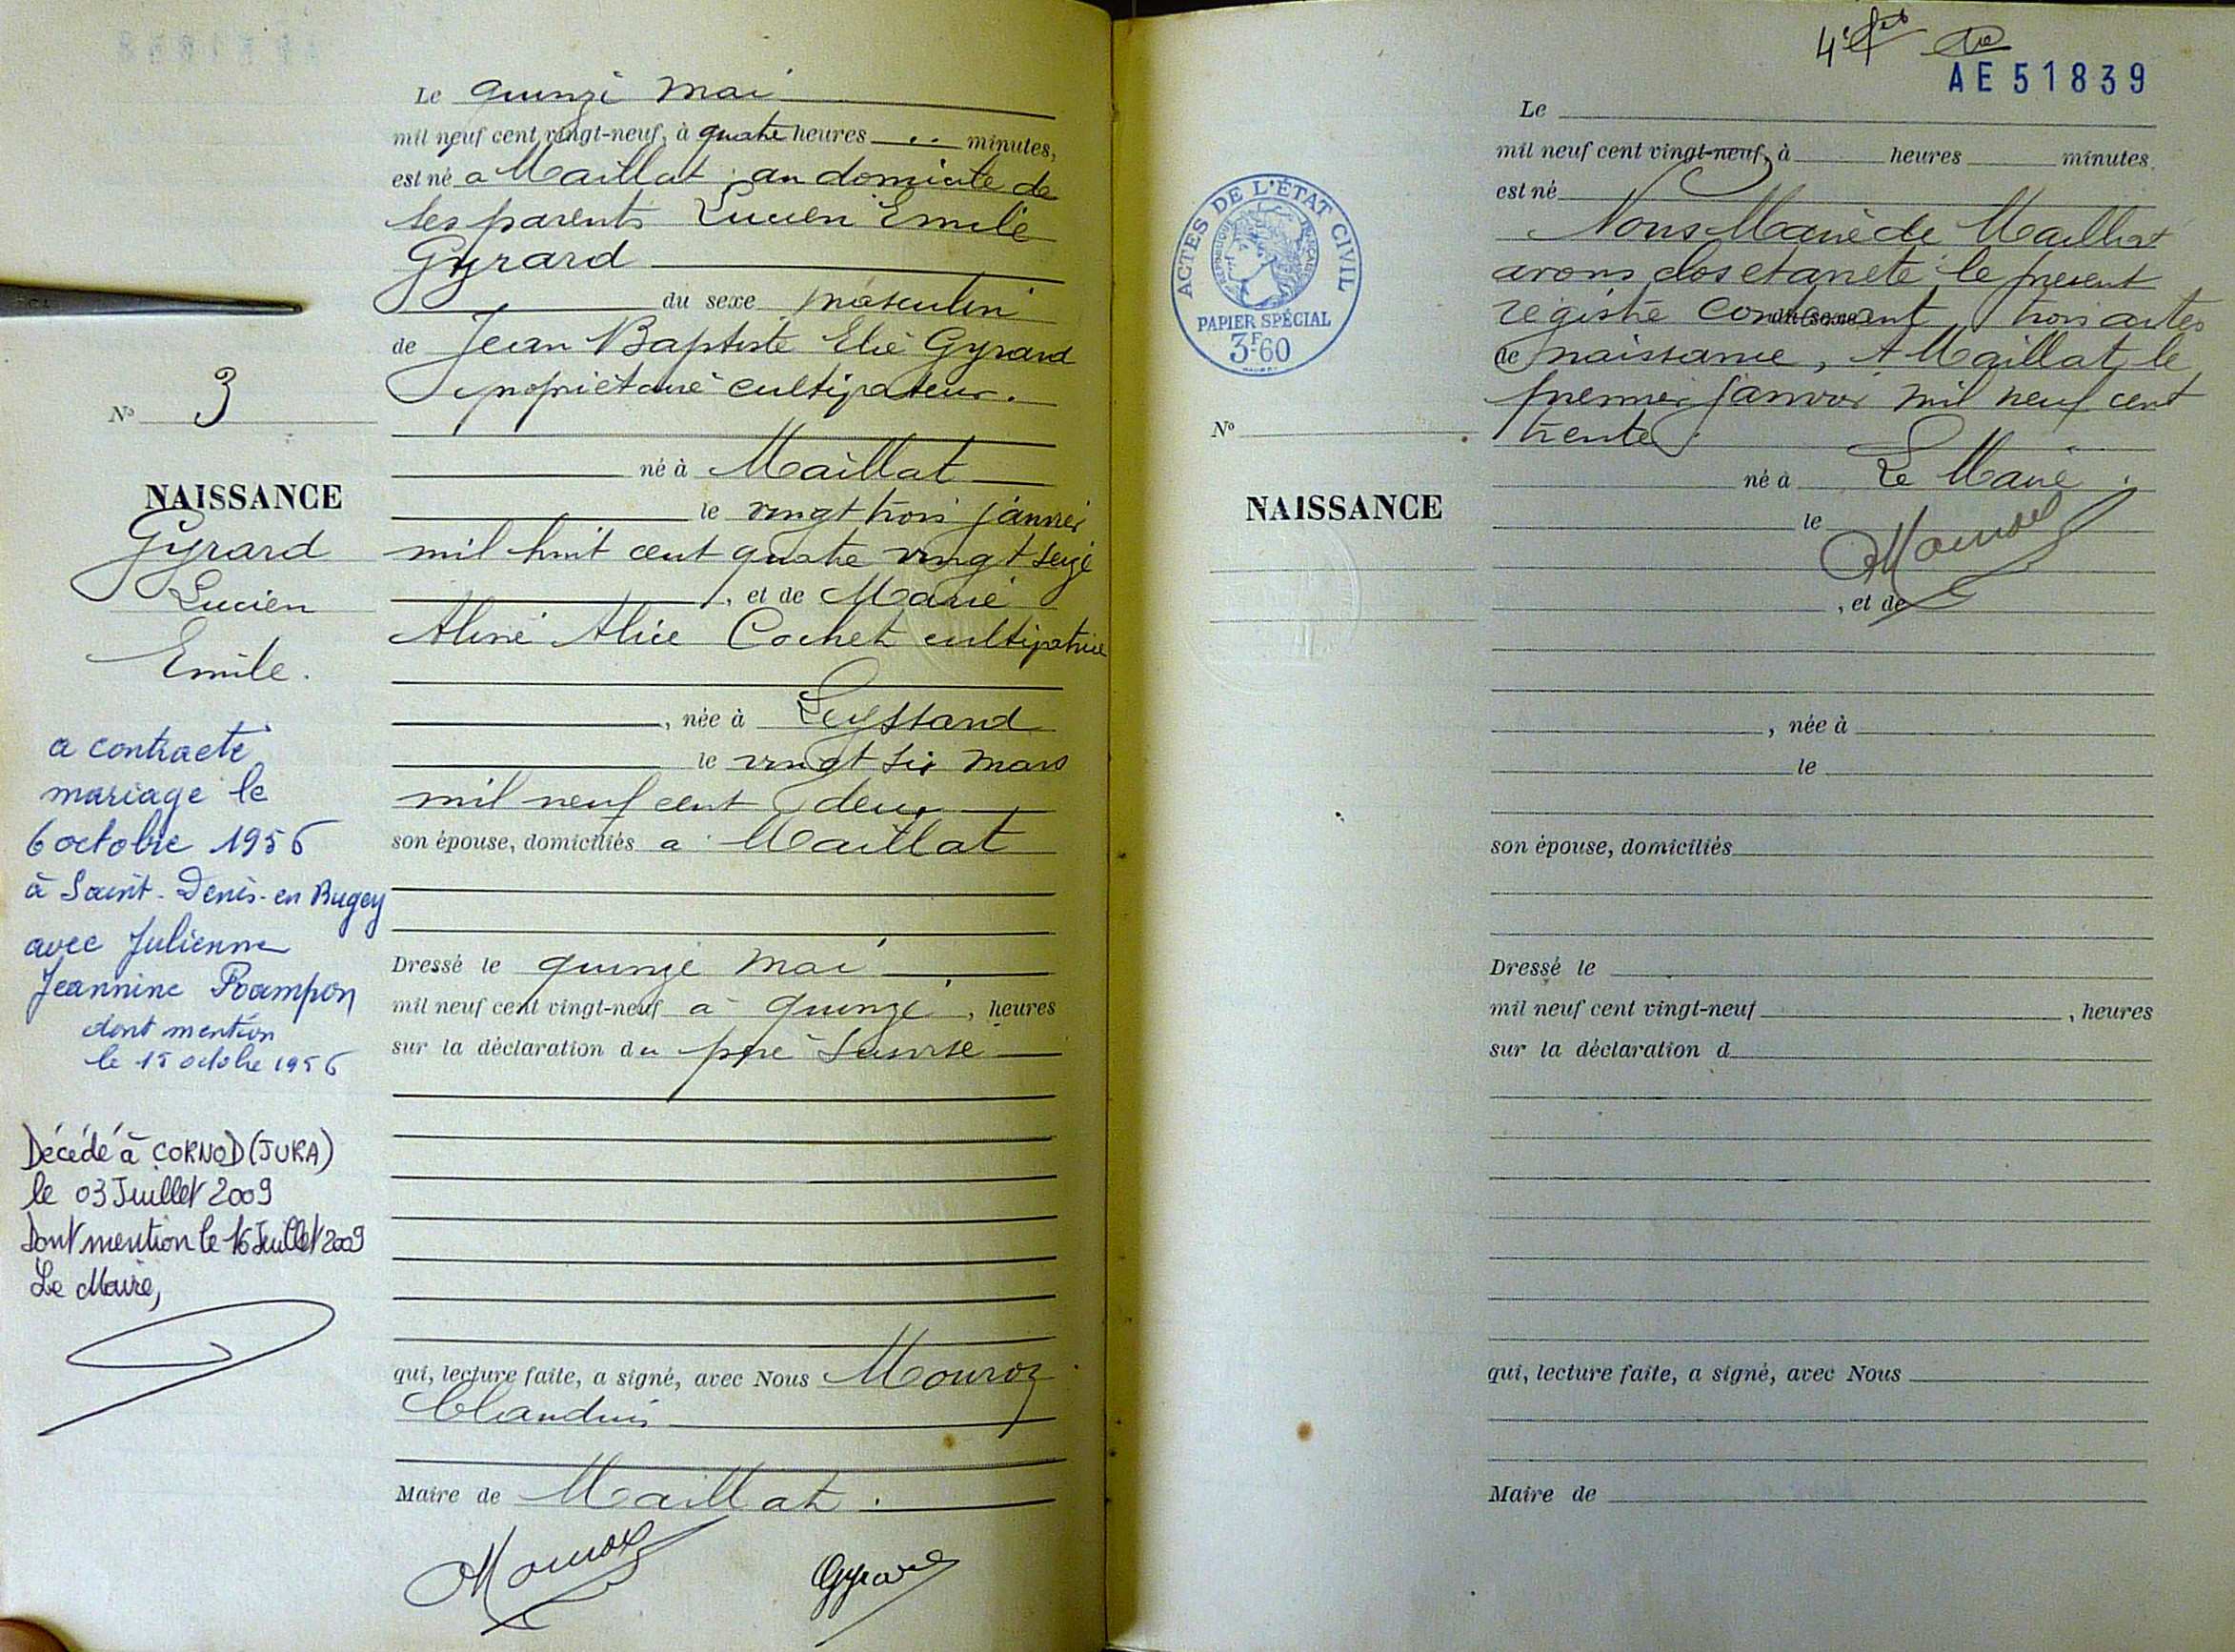 Le quinze mai
mil neuf cent vingt-neuf, à quatre heures .. minutes,
est né a Maillat, au domicile de
ses parents Lucien Emile
Gyrard
du sexe masculin
de Jean Baptiste Elie Gyrard
propriétaire cultivateur.
né à Maillat
le vingt trois janvier
mil huit cent quatre vingt seize
, et de Marie
Aline Alice Cochet cultivatrice
, née à Leyssard
le vingt six mars
mil neuf cent deux
son épouse, domiciliés a Maillat
Dressé le quinze mai
mil neuf cent vingt-neuf a quinze, heures
sur la déclaration du père
qui, lecture faite, a signé, avec Nous Mouroz
Claudius
Maire de Maillat.
Gyrard
No 3
NAISSANCE
Gyrard
Lucien
Emile.
a contracté
mariage le
6 octobre 1956
à Saint-Denis-en Bugey
avec Julienne
Jeannine Rampon
dont mention
le 15 octobre 1956
Décédé à CORNOD (JURA)
le 03 Juillet 2009
Dont mention le 16 Juillet 2009
Le Maire,
AE51839
ACTES DE L'ÉTAT CIVIL
RÉPUBLIQUE FRANÇAISE
PAPIER SPÉCIAL
3F60
No
NAISSANCE
Le
mil neuf cent vingt-neuf, à heures minutes
est né
Nous Maire de Maillat
avons clos et arrêté le présent
registre contenant trois actes
du sexe
de naissance, A Maillat, le
premier janvier mil neuf cent
trente.
né à Le Maire.
le
, et de
, née à
le
son épouse, domiciliés
Dressé le
mil neuf cent vingt-neuf , heures
sur la déclaration d
qui, lecture faite, a signé, avec Nous
Maire de